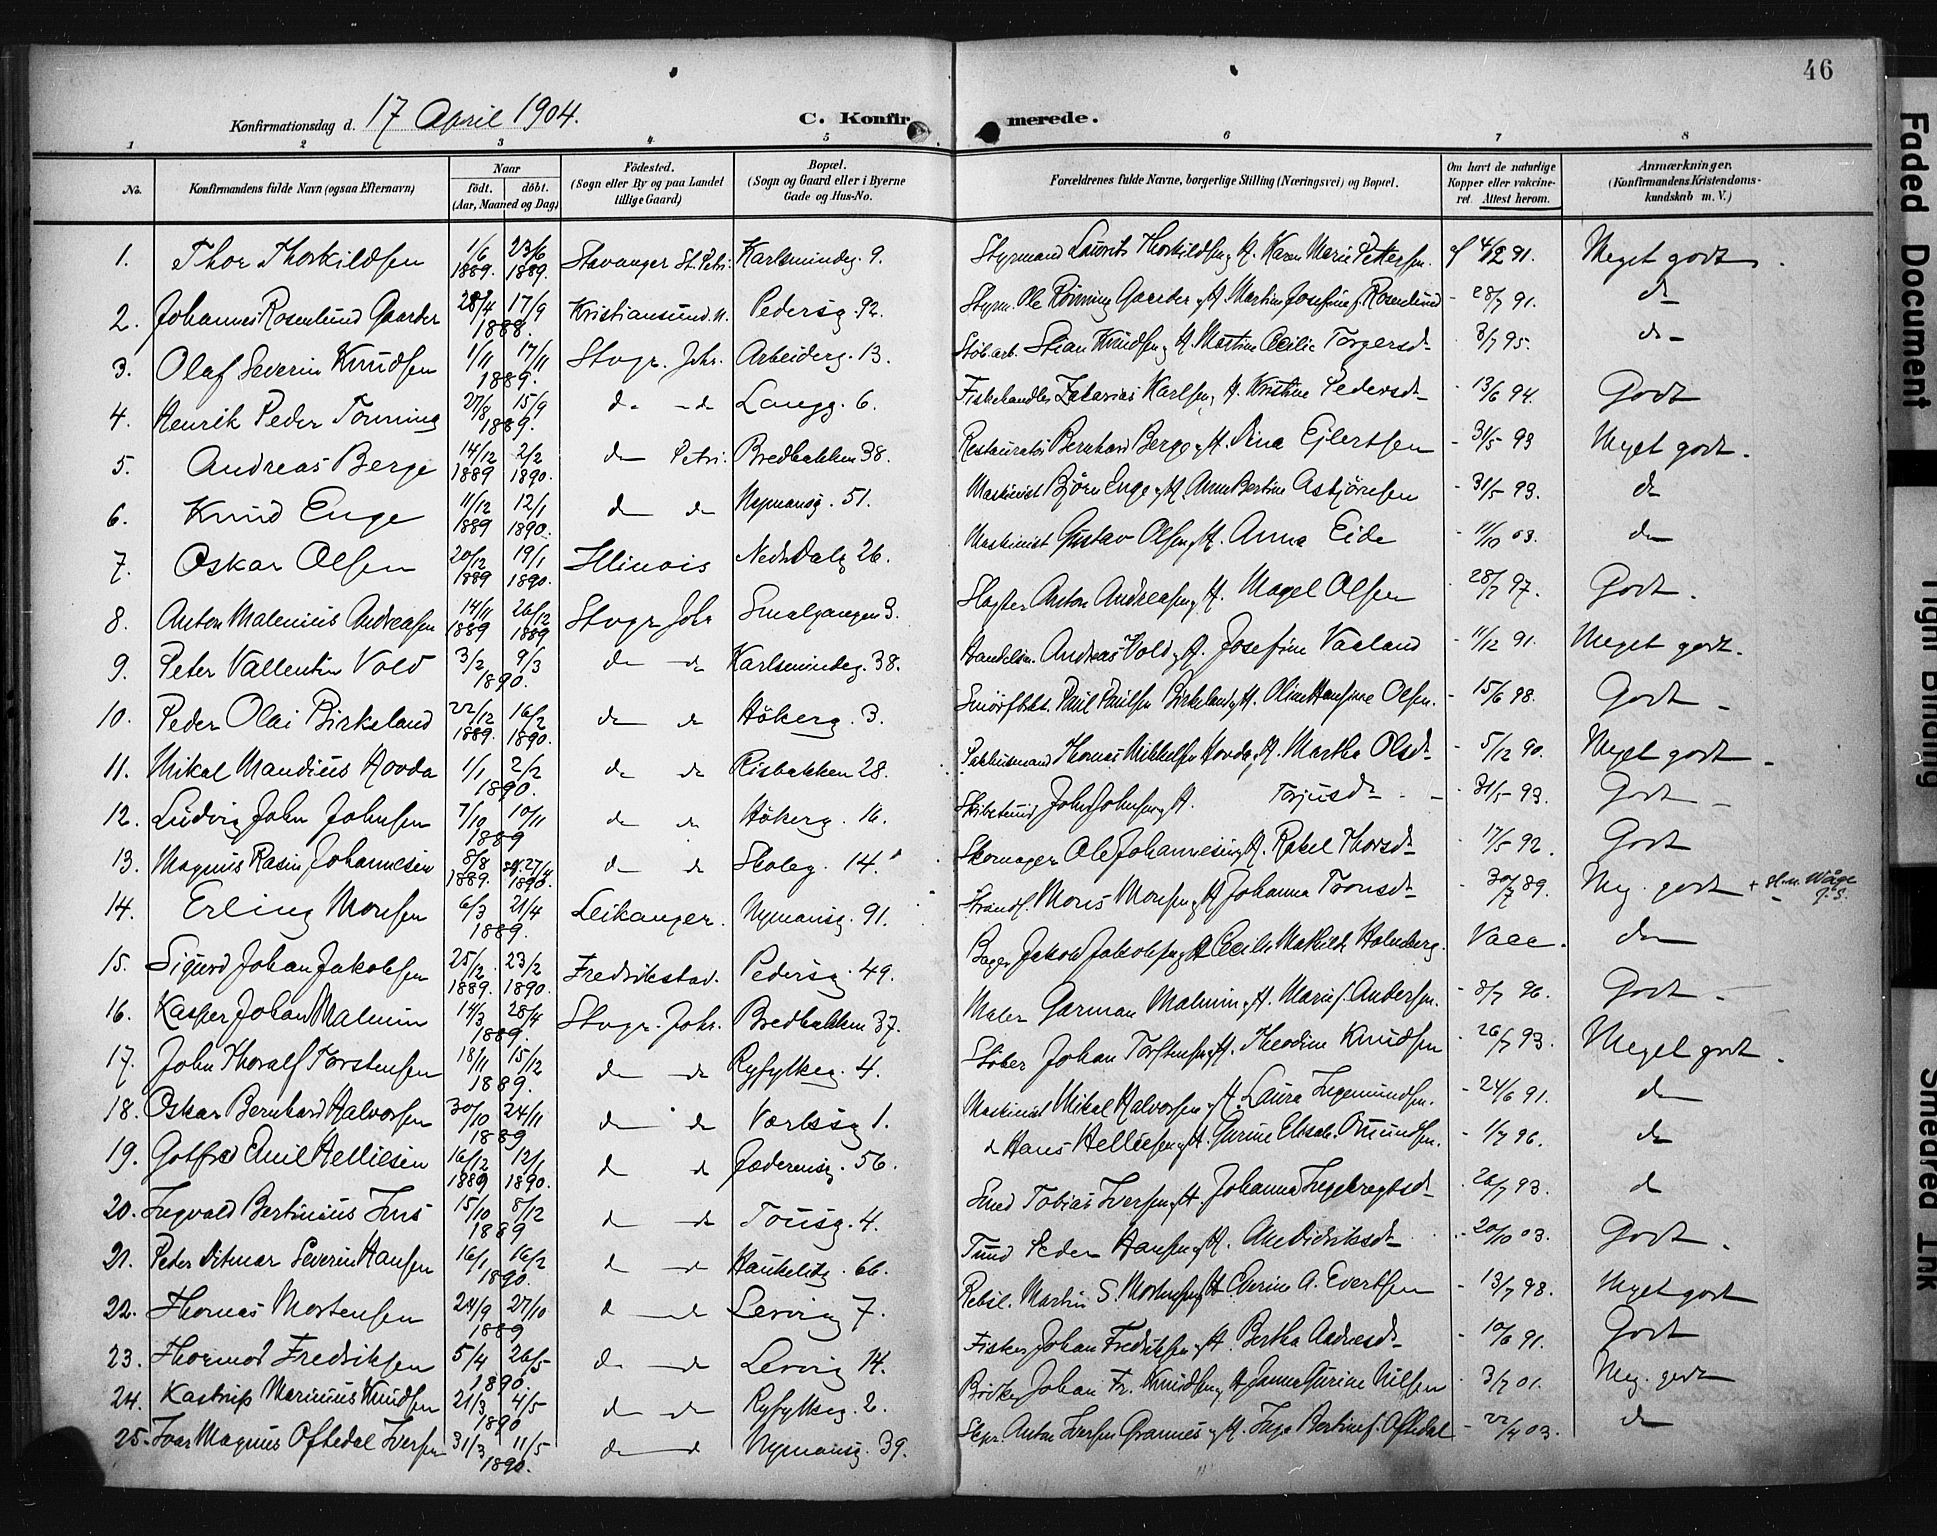 46
Konfirmationsdag d. 17 April 1904.
C. Konfirmerede.
1 2 3 4 5 6 7 8
No. Konfirmandens fulde Navn (ogsaa Efternavn) Naar født. døbt. (Aar, Maaned og Dag) Fødested. (Sogn eller By og paa Landet tillige Gaard) Bopæl. (Sogn og Gaard eller i Byerne Gade og Hus-No. Forældrenes fulde Navne, borgerlige Stilling (Næringsvei) og Bopæl. Om havt de naturlige Kopper eller vakcineret. Attest herom. Anmærkninger. (Konfirmandens Kristendomskundskab m. V.)
1. Thor Thorkildsen 1/6 1889. 23/6 1889. Stavanger St. Petri. Karlsmindeg. 9. Styrmand Laurits Thorkildsen og H. Karen Marie Pettersen. af 4/2 91. Meget godt.
2. Johannes Rosenlund Gaarder 28/4 17/9 1888. Kristiansund. N. Pedersg. 92. Styrm. Ole Rönning Gaarder og H. Martine Josefine f. Rosenlund - 28/7 91. do
3. Olaf Severin Knudsen 1/11 17/11 1889. Stvgr. Joh. Arbeiderg. 13. Støb.arb. Stian Knudsen og H. Martine Cecilie Torgersd. 3/7 95. do
4. Henrik Peder Tonning 27/8 15/9 1889. do do Langg. 6. Fiskehandler Zakarias Karlsen og H. Kristine Pedersdt - 13/6 94. Godt
5. Andreas Berge 14/12 1889 2/2 1890. do Petri. Bredbakken 38. Restauratør Bernhard Berge og H. Dina Ejlertsen - 31/5 93 Meget godt.
6. Knud Enge 11/12 1889 12/1 1890. do do Nymansg. 51. Maskinist Björn Enge og H. Anne Bertine Asbjörnsen - 31/5 93. do
7. Oskar Olsen 20/12 1889 19/1 1890. Illinois Nedr. Dalg 26. Maskinist Gustav Olsen og H. Anna Eide - 11/10 03. do
8. Anton Malenius Andreasen 14/11 1889 26/12 1889 Stvgr. Joh Smalgangen 3. Slagter Anton Andreasen og H. Magel Olsen - 28/7 97. Godt.
9. Peter Vallentin Vold 3/2 9/3 1890. do do Karlsmindeg. 38. Handelsm. Andreas Vold og H. Josefine Vaaland - 11/12 91. Meget godt.
10. Peder Olai Birkeland 22/12 1889. 16/2 1890. do do Hökerg. 3. Paul Paulsen Birkeland og H. Oline Hansine Olsen. - 15/6 98. Godt
11. Mikal Mandius Hovda 1/1 2/2 1890. do do Risbakken 28. Pakhusmand Thomas Mikkelsen Hovda og H. Martha Olsdt - 5/12 90. Meget godt
12. Ludvig John Johnsen 7/10 10/11 1889 do do Hökerg. 16. John Johnsen og H. Torjusdt - 31/5 93. Godt
13. Magnus Rasin Johannesen 8/8 1889. 27/4 1890. do do Skoleg. 14. Skomager Ole Johannesen og H. Rakel Thorsdt - 17/5 92. Godt
14. Erling Monsen 6/3 21/4 1889. Leikanger. Nymansg. 91. Strandf. Mons Monsen og H. Johanna Tronsdt - 30/7 89. Meg. godt
15. Sigurd Johan Jakobsen 25/12 1889. 23/2 1890. Fredrikstad. Pedersg. 49. Bager Jakob Jakobsen og H. Cecilie Mathilde Holmberg. Vacc. do
16. Kasper Johan Malmin 14/3 28/4 1889. Stvgr. Joh. Bredbakken 37. Maler Garman Malmin og H. Marie f. Andersen. - 8/7 96. Godt
17. John Thoralf Torstensen 18/11 15/12 1889. do do Ryfylkeg. 4. Støber Johan Torstensen og H. Theodine Knudsen - 26/7 93. Meget godt.
18. Oskar Bernhard Halvorsen 30/10 24/11 1889 do do Værksg 1. Maskinist Mikal Halvorsen og H. Laura Ingemundsen. - 24/6 91. do
19. Gotfred Emil Helliesen 16/12 1889 12/1 1890. do do Jæderensg. 56. d Hans Helliesen og H. Gurine Elisab. Omundsen. - 1/7 96. do
20. Ingvald Bertinius Ims 15/10 8/12 1889 do do Tousg. 4. Smed Tobias Iversen og H. Johanna Ingebregtsdt 26/7 93. do
21. Peder Ditmar Severin Hansen 16/1 16/2 1890. do do Haukeligt. 66. Peder Hansen og H. Ane Didriksdt - 20/10 03. Godt.
22. Thomas Mortensen 24/9 27/10 1889 do do Lervig 7. Rebsl. Martin S. Mortensen og H. Everine A. Evertsen - 13/7 98. Meget godt
23. Thormod Fredriksen 5/4 26/5 1890 do do Lervig 14. Fisker Johan Fredriksen og H. Bertha Andresdt - 10/6 91. Godt
24. Kastrup Marinius Knudsen 21/3 4/5 1890 do do Ryfylkeg. 2. Johan Fr. Knudsen og H. Janna Gurine Nilsen - 3/7 01. Meg. godt
25. Ivar Magnus Oftedal Iversen 31/3 11/5 1890. do Nymansg. 39. Skpr. Anton Iversen Grannes og H. Inga Bertine f. Oftedal - 22/4 03. do
Faded Document
Tight Binding
Smeared Ink